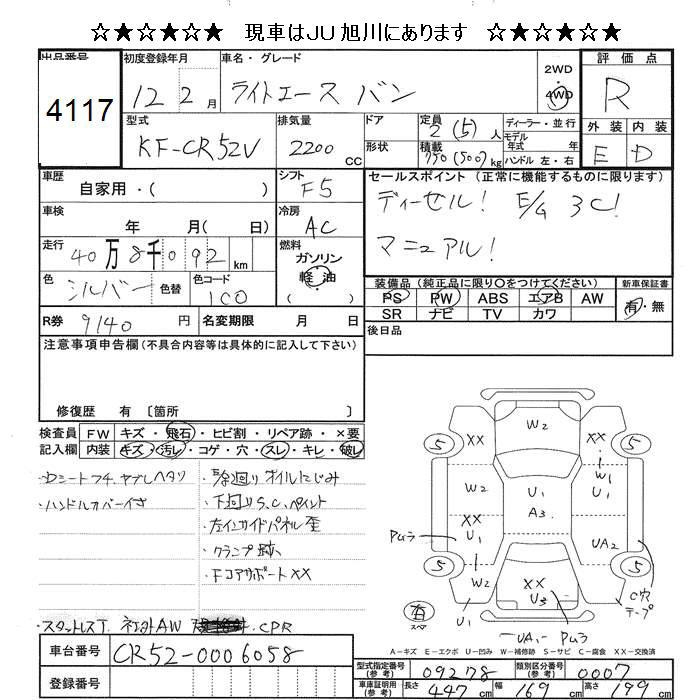 ☆★☆★☆★ 現車はJU旭川にあります ☆★☆★☆★
出品番号
4117
初度登録年月
12 2月
車名・グレード
ライトエース バン
2WD
4WD
評価点
R
外装 内装
E D
型式
KF-CR52V
排気量
2200 cc
ドア
形状
定員
2(5)人
積載
750(500)kg
ディーラー・並行
モデル
年式 年
ハンドル 左・右
車歴
自家用・( )
シフト
F5
セールスポイント (正常に機能するものに限ります)
ディーゼル! E/G 3C!
マニュアル!
車検
年 月( 日)
冷房
AC
走行
40万8千092km
燃料
ガソリン
軽油
( )
色
シルバー
色替
色コード
1C0
装備品 (純正品に限り○をつけてください)
PS PW ABS エアB AW
SR ナビ TV カワ
新車保証書
有・無
R券 9140円
名変期限 月 日
後日品
注意事項申告欄(不具合内容等は具体的に記入して下さい)
修復歴 有 〔箇所 〕
検査員
記入欄
FW キズ・飛石・ヒビ割・リペア跡・×要
内装 キズ・汚レ・コゲ・穴・スレ・キレ・破レ
・ハンドルカバー付
オイルにじみ
・下回りS.C.ペイント
・左インサイドパネル歪
・クランプ跡
・FコアサポートXX
・スタットレスT. AW CPR
W2
5 XX XX 5
W2 U1 W1
A3
XX U1 UA2
Pムラ
5 W2 XX 5
U3
U1
C穴
テープ
有
スペア
UA1 Pムラ
A-キズ E-エクボ U-凹み W-補修跡 S-サビ C-腐食 XX-交換済
車台番号 CR52-0006058
登録番号
型式指定番号
(参考)
09278
類別区分番号
(参考)
0007
車庫証明用
(参考)
長さ 447cm 幅 169cm 高さ 199cm